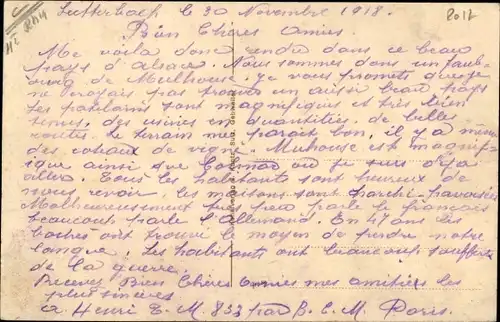 Lutterbach le 30 Novembre 1918.
8017
Bien Chères Amies.
Me voila donc rendu dans ce beau
pays d'alsace. Nous sommes dans un faub-
ourg de Mulhouse. je vous promets que je
ne croyais pas trouver un aussi beau pays
les patelins sont magnifiques et très bien
tenus, des usines en quantités, de belles
routes. Le terrain me parait bon, il y a même
des coteaux de vigne. Muhouse est magnif-
ique ainsi que Colmar où je suis déjà
aller. Tous les habitants sont heureux de
nous revoir, les maisons sont
Malheureusement très peu parle le français
beaucoup parle l'Allemand. En 47 ans les
boches ont trouvé le moyen de perdre notre
langue. Les habitants ont beaucoup souffert
de la guerre.
Recevez Bien Chères Amies mes amitiées les
plus sincères
Henri E. M. 833 par B. C. M. Paris.